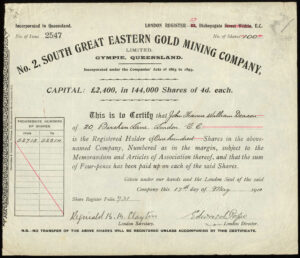 Incorporated in Queensland. LONDON REGISTER Bishopsgate Street Within, E.C.
No. of Issue 2547 No. of Shares 100
No. 2, SOUTH GREAT EASTERN GOLD MINING COMPANY,
LIMITED.
GYMPIE, QUEENSLAND.
Incorporated under the Companies' Acts of 1863 to 1893.
CAPITAL: £2,400, in 144,000 Shares of 4d. each.
PROGRESSIVE NUMBERS
OF SHARES.
This is to Certify that John William
of 20 London E C
is the Registered Holder of One hundred Shares in the above-
named Company, Numbered as in the margin, subject to the
Memorandum and Articles of Association thereof, and that the sum
of Four-pence has been paid up on each of the said Shares.
Given under our hands and the London Seal of the said
Company this 17th day of May
Share Register Folio
Reginald H. M. Clayton Edward
London Secretary. London Director.
N.B.-NO TRANSFER OF THE ABOVE SHARES WILL BE REGISTERED UNLESS ACCOMPANIED BY THIS CERTIFICATE.